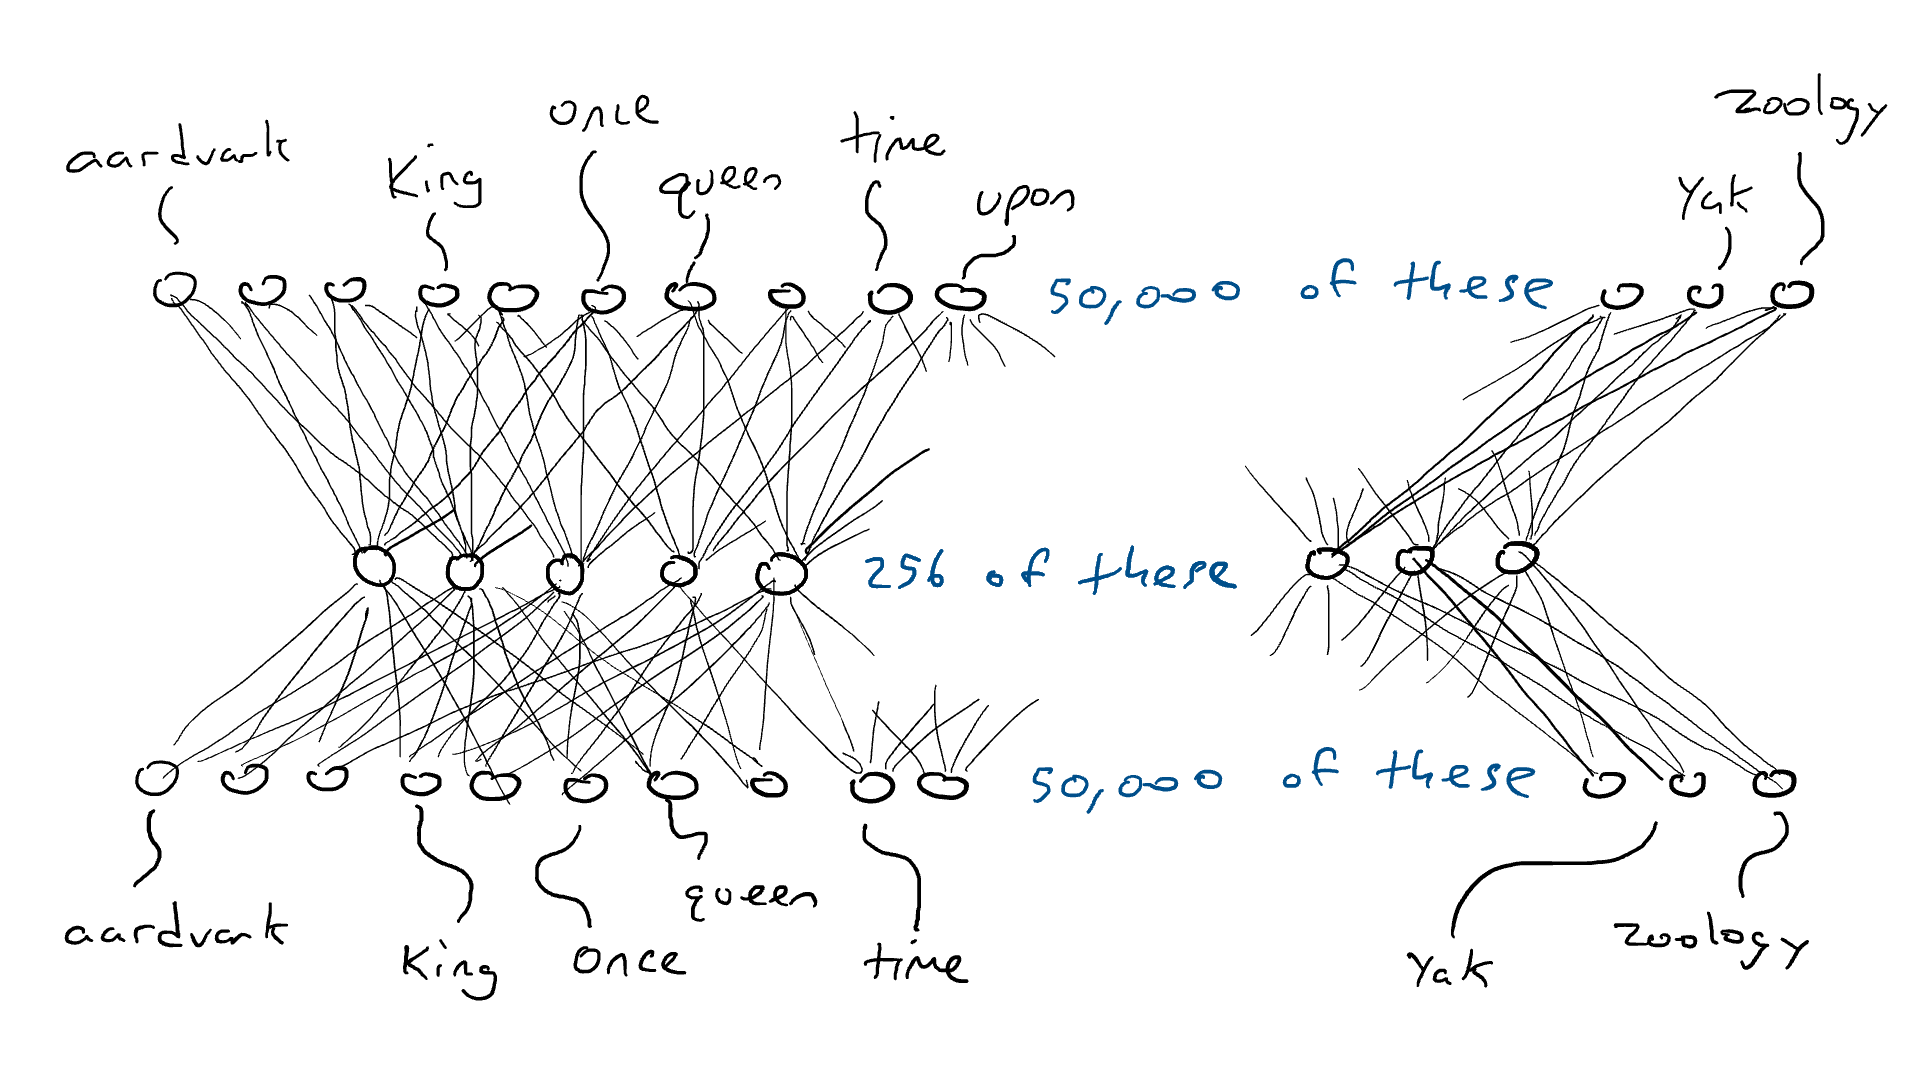 aardvark King once queen time upon Yak zoology
50,000 of these
256 of these
50,000 of these
aardvark King once queen time Yak zoology